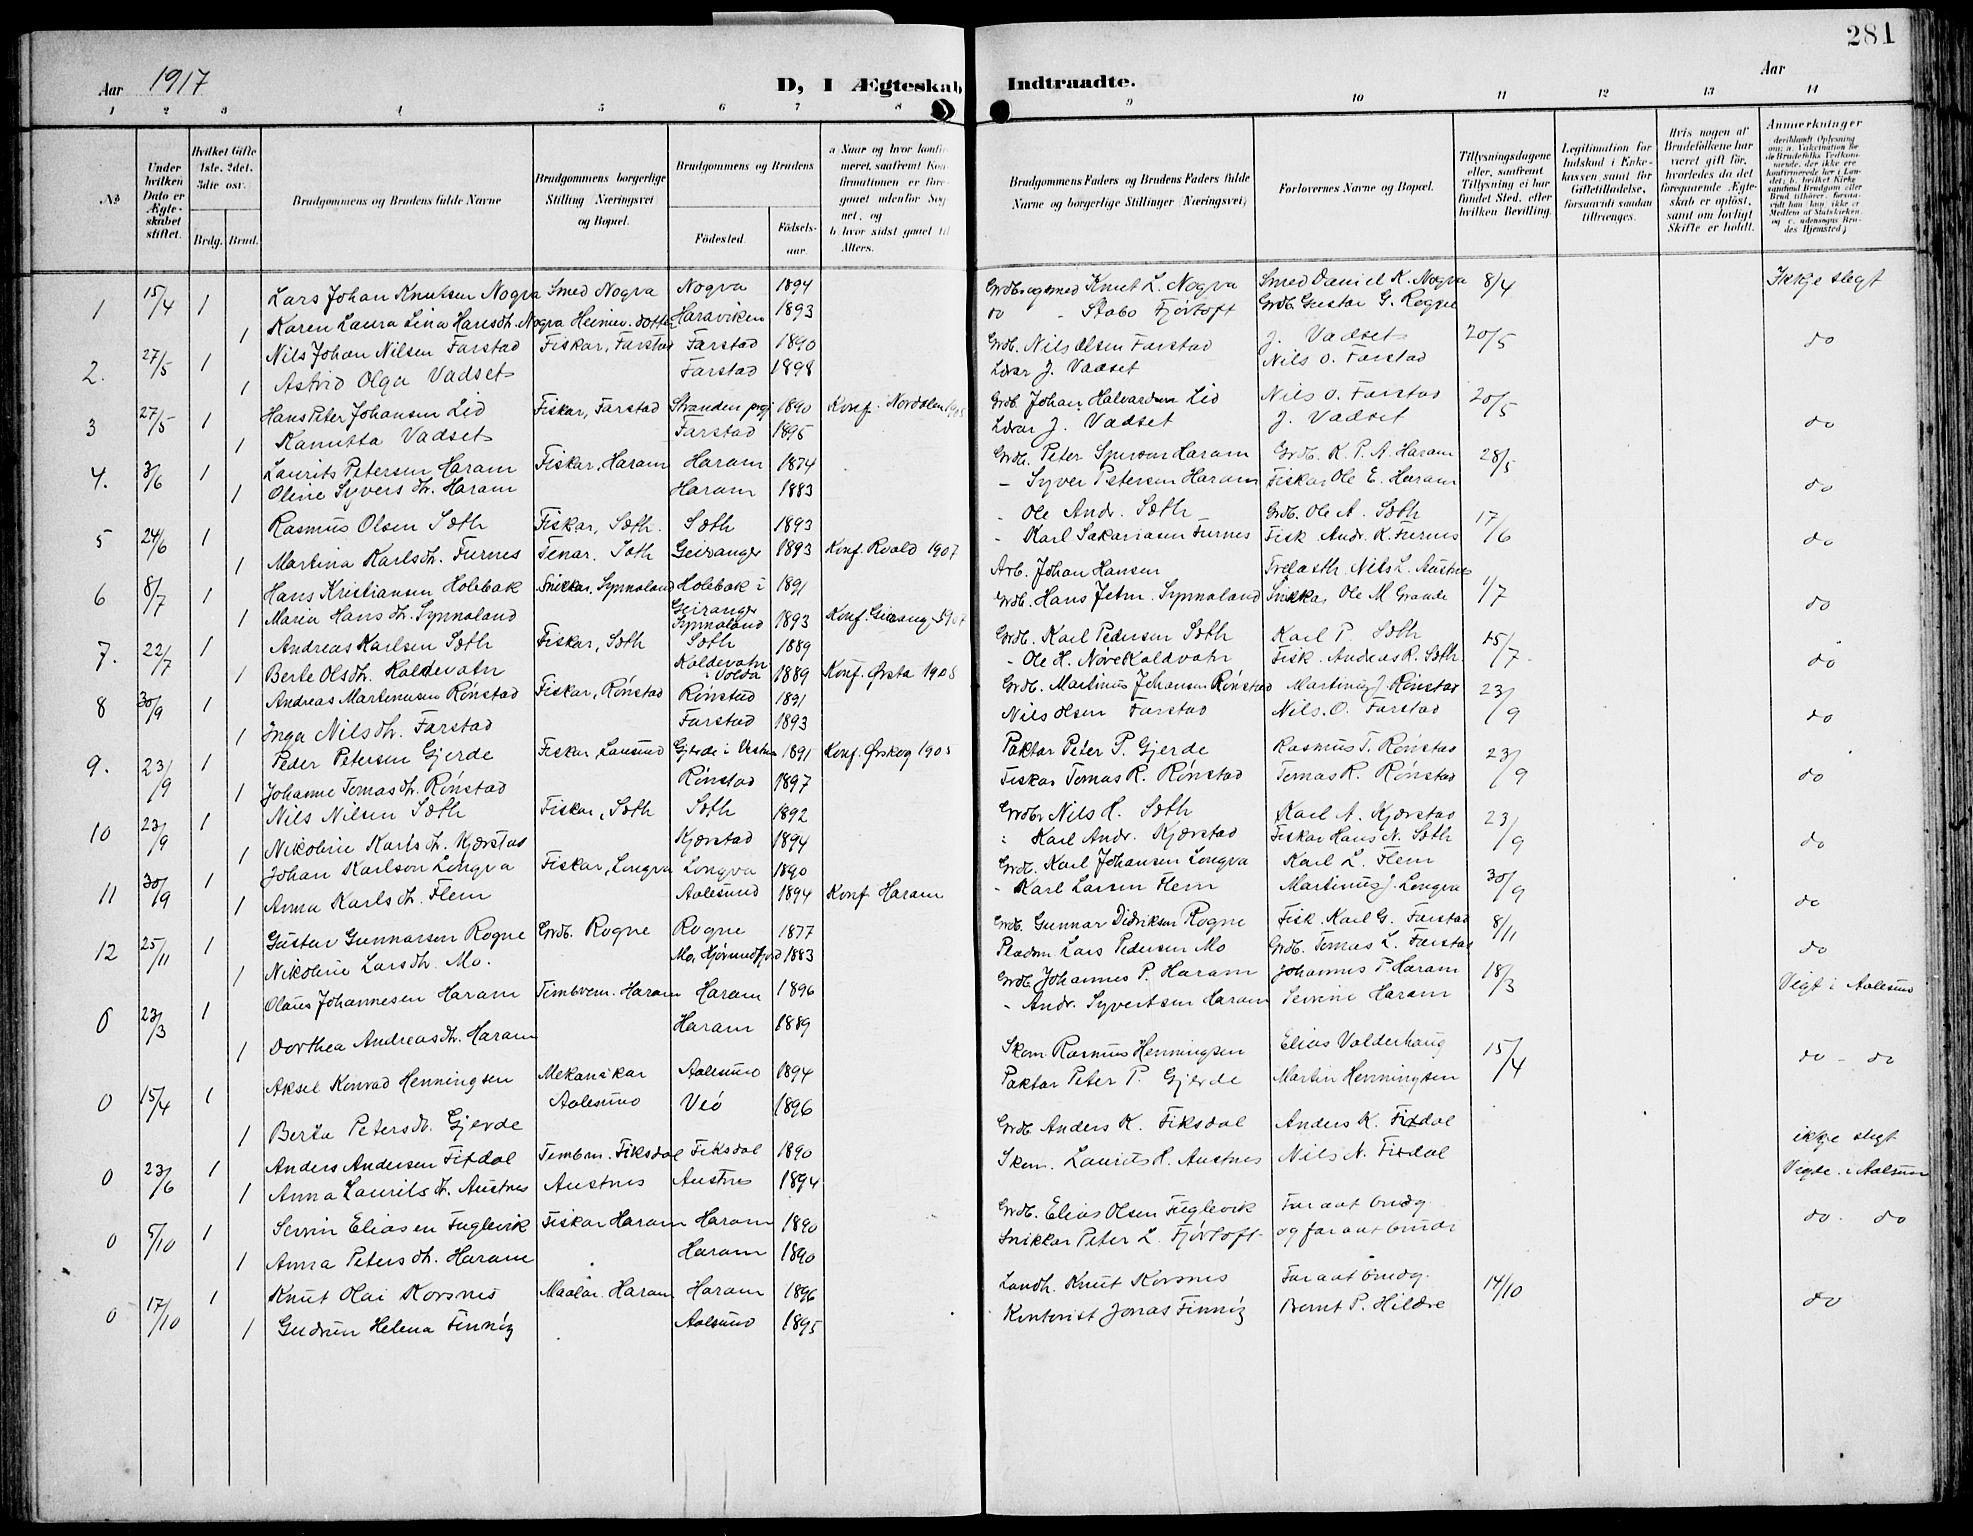 281
Aar 1917
D, I Ægteskab Indtraadte.
Aar
1 2 3 4 5 6 7 8 9 10 11 12 13 14
No
Under hvilken Dato er Ægteskabet stiftet.
Hvilket Gifte 1ste, 2det, 3die osv.
Brdg. Brud.
Brudgommens og Brudens fulde Navne
Brudgommens borgerlige Stilling Næringsvei og Bopæl.
Brudgommens og Brudens
Fødested. Fødselsaar.
a Naar og hvor konfirmeret, saafremt Konfirmationen er foregaaet udenfor Sognet, og
b hvor sidst gaaet til Alters.
Brudgommens Faders og Brudens Faders fulde Navne og borgerlige Stillinger (Næringsvei)
Forlovernes Navne og Bopæl.
Tillysningsdagene eller, saafremt Tillysning ei har fundet Sted, efter hvilken Bevilling.
Legitimation for Indskud i Enkekassen samt for Giftetilladelse, forsaavidt saadan tiltrænges.
Hvis nogen af Brudefolkene har været gift før, hvorledes da det foregaaende Ægteskab er opløst, samt om lovligt Skifte er holdt.
Anmerkninger
1 15/4 1 Lars Johan Knutsen Nogva Smed Nogva Nogva 1894 Knut L. Nogva Smed Daniel K. Nogva 8/4 Ikkje slegt
1 Karen Laura Lina Hansdtr. Nogva Heimev. dotter Haraviken 1893 do - Stabo Fjørtoft Grdb. Gustav G. Rogne
2. 27/5 1 Nils Johan Nilsen Farstad Fiskar, Farstad Farstad 1890 Grdb. Nils Olsen Farstad J. Vadset 20/5 do
1 Astrid Olga Vadset Farstad 1898 Lærar J. Vadset Nils O. Farstad
3 27/5 1 Hans Peter Johansen Lid Fiskar, Farstad Stranden prgj 1890 Konf. i Nordalen Grdb. Johan Halvardsen Lid Nils O. Farstad 20/5
1 Kanutta Vadset Farstad 1895 Lærar J. Vadset J. Vadset do
4. 3/6 1 Laurits Petersen Haram Fiskar, Haram Haram 1874 Grdb. Peter Haram Grdb. K. P. A. Haram 28/5
1 Oline Syversdtr. Haram Haram 1883 - Syver Petersen Haram Fiskar Ole E. Haram do
5 24/6 1 Rasmus Olsen Søth Fiskar, Søth. Søth 1893 - Ole Andr. Søth Grdb. Ole A. Søth 17/6
1 Martina Karlsdtr. Furnes Tenar. Søth Geiranger 1893 Konf. Roald 1907 - Karl Sakariasen Furnes Fisk Andr. K. Furnes do
6 8/7 1 Hans Kristiansen Holebak Snikkar, Synnaland Holebak i Geiranger 1891 Arb. Johan Hansen Nils L. Austnes 1/7
1 Maria Hansdtr. Synnaland Synnaland 1893 Grdb. Hans Synnaland Snikkar Ole M Grande do
7. 22/7 1 Andreas Karlsen Søth Fiskar, Søth Søth 1889 Grdb. Karl Pedersen Søth Karl P. Søth 15/7
1 Berte Olsdtr. Koldevatn Koldevatn i Volda 1889 Konf. Ørsta 1905 - Ole H. Nøve Koldvatn Fisk. Andreas R. Søth. do
8 30/9 1 Andreas Martinusen Rønstad Fiskar, Rønstad Rønstad 1891 Grdb. Martinus Johansen Rønstad Martinus J. Rønstad 23/9
1 Inga Nilsdtr. Farstad Farstad 1893 Nils Olsen Farstad Nils. O. Farstad do
9. 23/9 1 Peder Petersen Gjerde Fiskar, Gjerde i Vestnes 1891 Konf. Ørskog 1905 Paktar Peter P. Gjerde Rasmus T. Rønstad 23/9
1 Johanne Tomasdtr. Rønstad Rønstad 1897 Fiskar Tomas R. Rønstad Tomas R. Rønstad do
10 23/9 1 Nils Nilsen Søth Fiskar, Søth Søth 1892 Grdbr Nils H. Søth Karl A. Kjærstad 23/9
1 Nikoline Karlsdtr. Kjærstad Kjærstad 1894 : Karl Andr. Kjærstad Fiskar Hans N. Søth do
11 30/9 1 Johan Karlson Longva Fiskar, Longva Longva 1890 Grdb. Karl Johansen Longva Karl L. Flem 30/9
1 Anna Karlsdtr. Flem Aalesund 1894 Konf Haram - Karl Larsen Flem Martinus J. Longva do
12 25/11 1 Gustav Gunnarsen Rogne Grdb. Rogne Rogne 1877 Grdb. Gunnar Didriksen Rogne Fisk. Karl G. Farstad 8/11
1 Nikoline Larsdtr. Mo. Mo, Hjørundfjord 1883 Pladsm Lars Pedersen Mo Grdb. Tomas L. Farstad do
0 23/3 1 Olaus Johannesen Haram Timberm. Haram Haram 1896 Grdb. Johannes P. Haram Johannes P. Haram 18/3 Vigt i Aalesund
1 Dorthea Andreasdtr. Haram Haram 1889 - Andr. Syvertsen Haram Severine Haram
0 15/4 1 Aksel Konrad Henningsen Mekanikar Aalesund Aalesund 1894 Skom. Rasmus Henningsen Elias Valderhaug 15/4 do - do
1 Berta Petersdtr. Gjerde Veø 1896 Paktar Peter P. Gjerde Martin Henningsen
0 23/6 1 Anders Andersen Fixdal Tembm. Fiksdal Fiksdal 1890 Grdb. Anders K. Fiksdal Anders K. Fixdal ikkje slegt
1 Anna Lauritsdtr. Austnes Austnes Austnes 1894 Skom. Laurits H. Austnes Nils N. Fixdal Vigde i Aalesund
0 5/10 1 Severin Eliasen Fuglevik Fiskar Haram Haram 1890 Grdb. Elias Olsen Fuglevik Far aat brudg. do. do
1 Anna Petersdtr. Haram Haram 1890 Snikkar Peter L. Fjørtoft og far aat brudi
0 17/10 1 Knut Olai Korsnes Maalar. Haram Haram 1896 Landh. Knut Korsnes Far aat brudg. 14/10
1 Gudrun Helena Finnøy Aalesund 1895 Kontorist Jonas Finnøy Bernt P. Hildre do